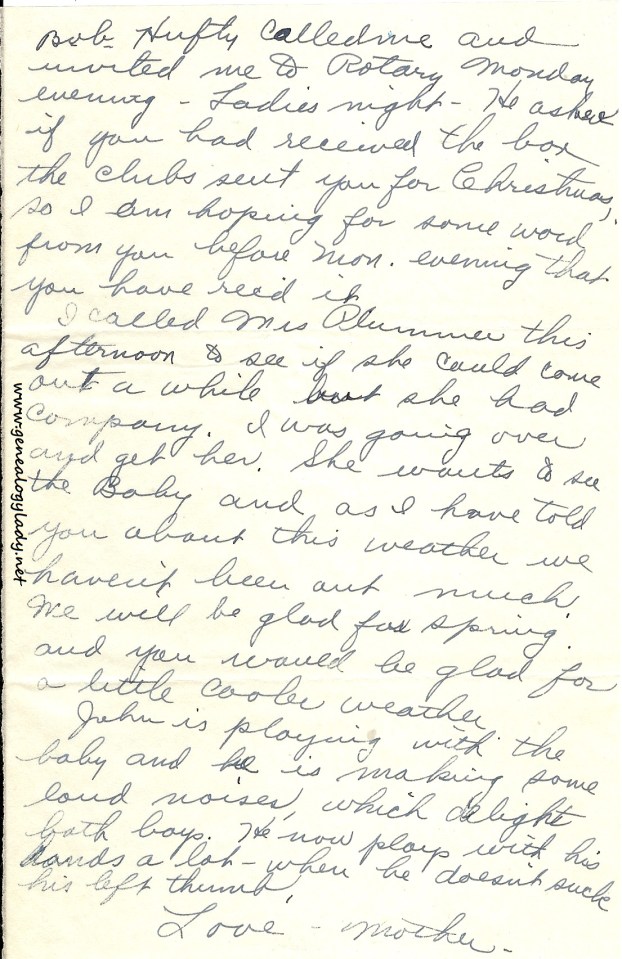 Bob Hufty Called me and
invited me to Rotary Monday
evening - Ladies night - He asked
if you had received the box
the clubs sent you for Christmas,
so I am hoping for some word
from you before Mon. evening that
you have rec'd it.
I called Mrs Plummer this
afternoon to see if she could come
out a while but she had
company. I was going over
and get her. She wants to see
the Baby and as I have told
you about this weather we
haven't been out much.
We will be glad for spring.
and you would be glad for
a little cooler weather
John is playing with the
baby and he is making some
loud noises, which delight
both boys. He now plays with his
hands a lot - when he doesn't suck
his left thumb,
Love - Mother -
www.genealogylady.net